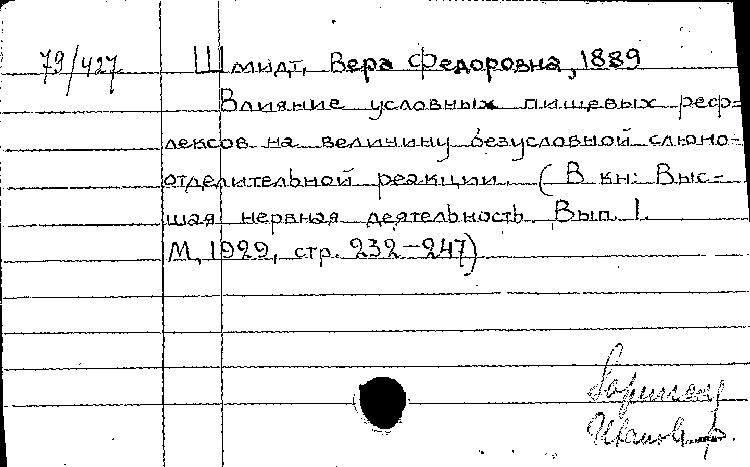 79/427 Шмидт, Вера Федоровна, 1889
Влияние условных пищевых реф=
лексов на величину безусловной слюно-
отделительной реакции. (В кн: Выс=
шая нервная деятельность. Вып. 1.
М., 1929, стр. 232-247)